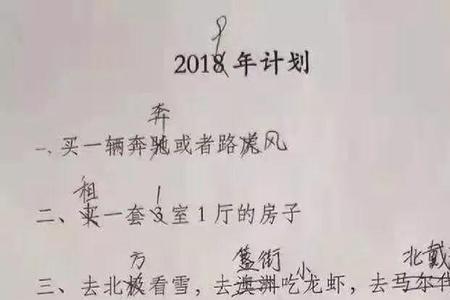 9
2018年计划
奔
一、买一辆奔驰或者路虎风
租 1
二、买一套3室1厅的房子
方 簋街 小 北戴
三、去北极看雪，去澳洲吃龙虾，去马尔代